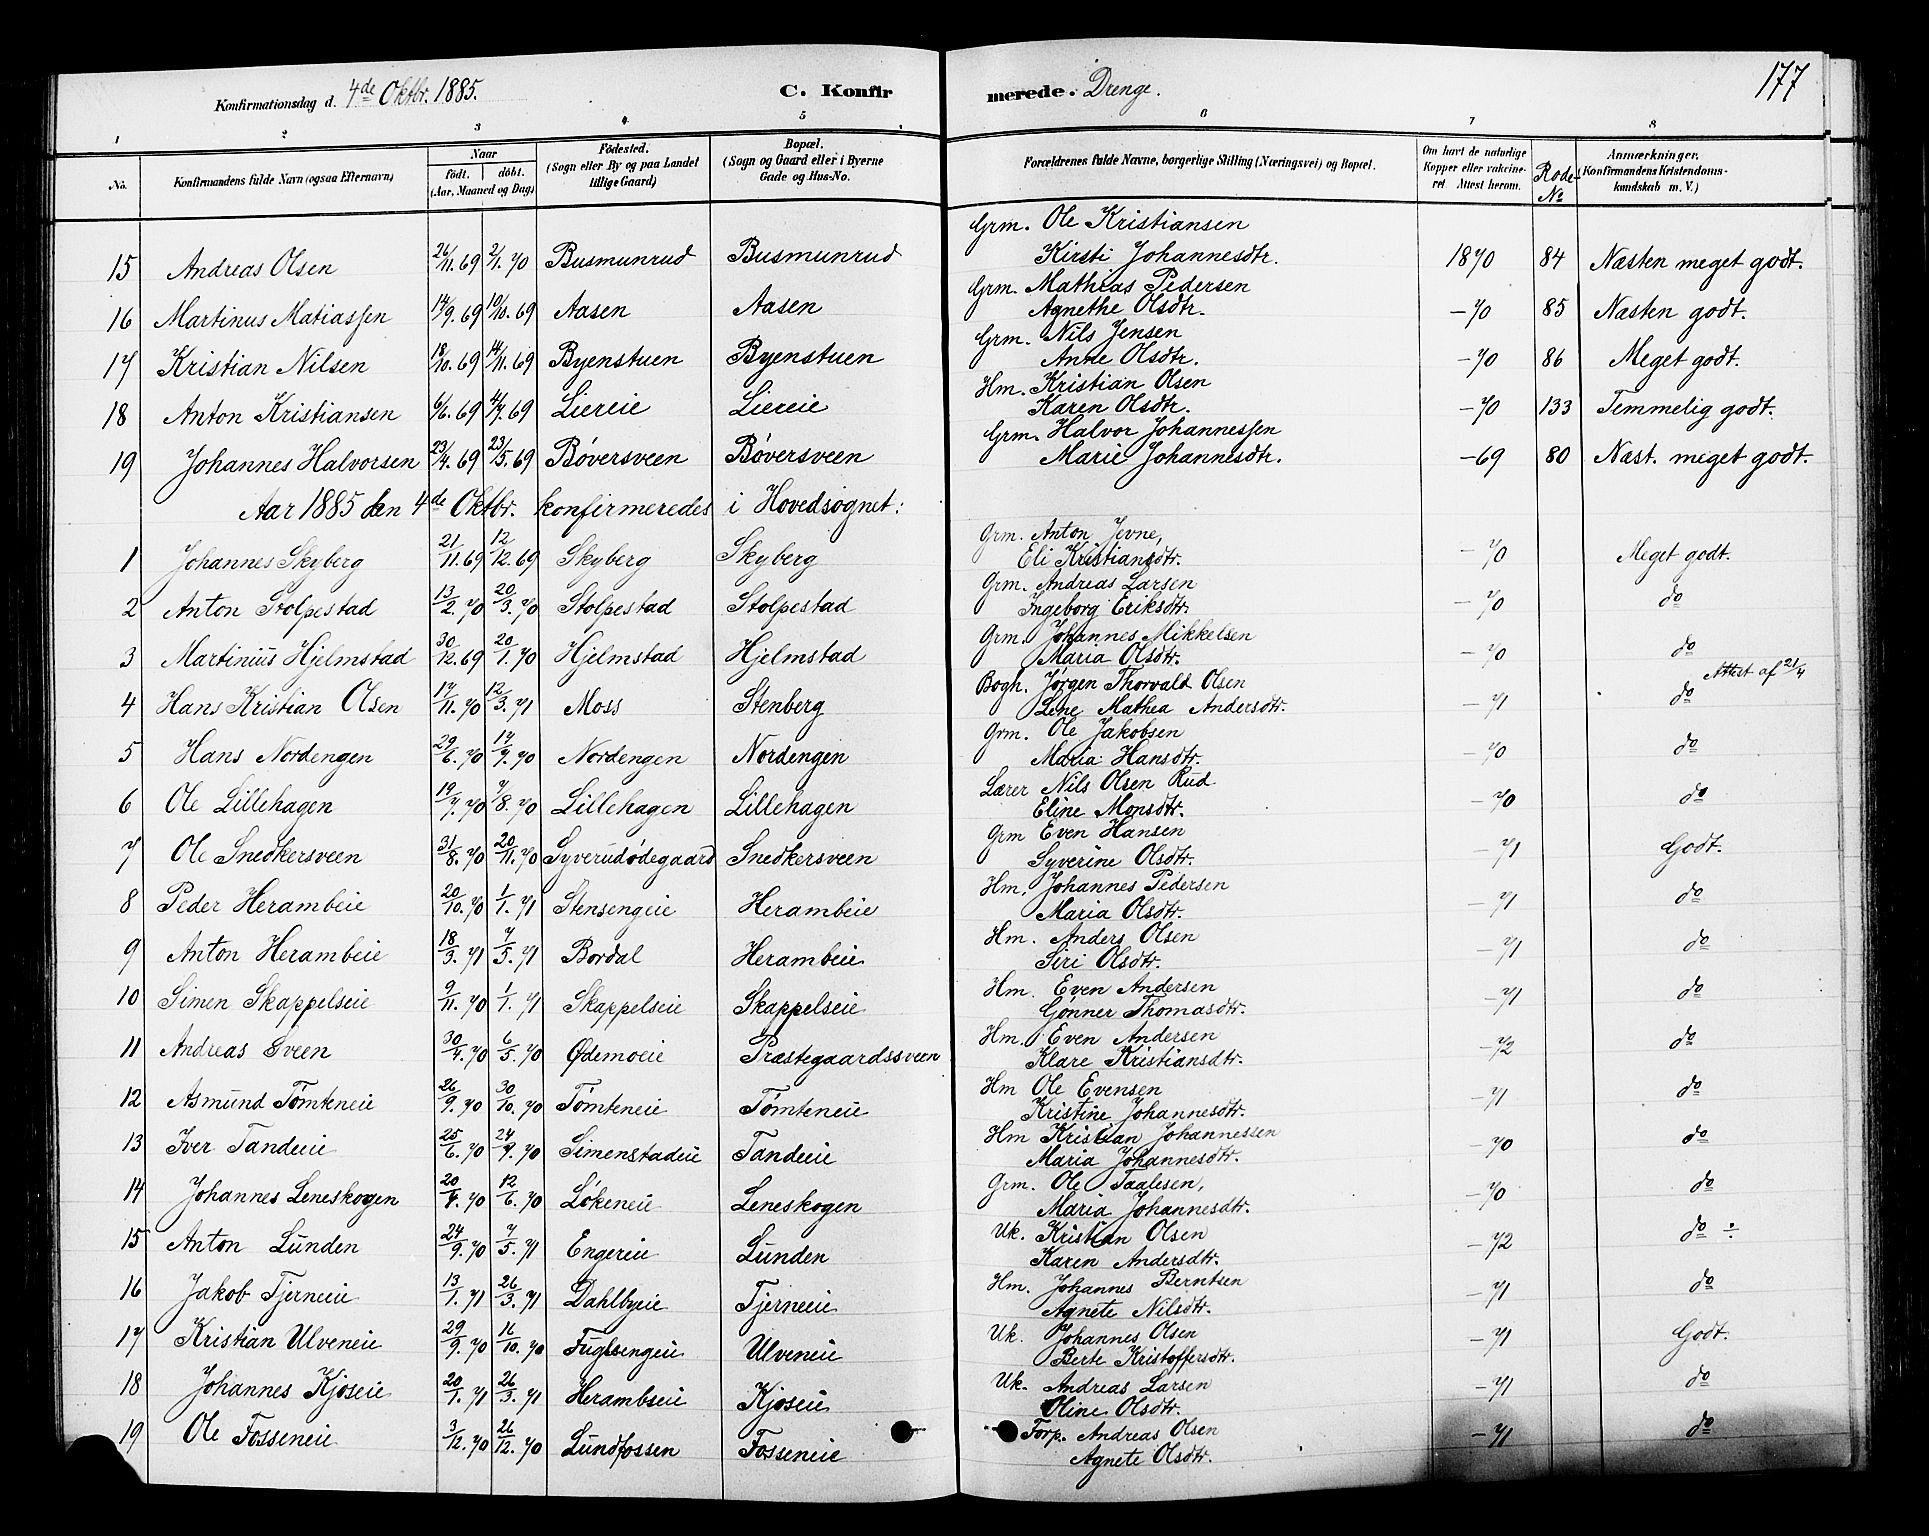 Konfirmationsdag d. 4de Oktbr. 1885. C. Konfirmerede. Drenge. 177
1 2 3 4 5 6 7 8
No. Konfirmandens fulde Navn (ogsaa Efternavn) Naar födt. döbt. (Aar, Maaned og Dag) Födested. (Sogn eller By og paa Landet tillige Gaard) Bopæl. (Sogn og Gaard eller i Byerne Gade og Hus-No. Forældrenes fulde Navne, borgerlige Stilling (Næringsvei) og Bopæl. Om havt de naturlige Kopper eller vakcineret Attest herom. Rode-No Anmærkninger. (Konfirmandens Kristendomskundskab m. V.)
Grm. Ole Kristiansen
15 Andreas Olsen 26/11.69 2/1.70 Busmunrud Busmunrud Kirsti Johannesdtr. 1870 84 Næsten meget godt.
Grm. Mathias Pedersen
16 Martinus Matiassen 14/9.69 10/10.69 Aasen Aasen Agnethe Olsdtr. -70 85 Næsten godt.
Grm. Nils Jensen
17 Kristian Nilsen 18/10.69 14/11.69 Byenstuen Byenstuen Anne Olsdtr. -70 86 Meget godt.
Hm. Kristian Olsen
18 Anton Kristiansen 6/6.69 4/7.69 Liereie Liereie Karen Olsdtr. -70 133 Temmelig godt.
Grm. Halvor Johannessen
19 Johannes Halvorsen 23/4.69 23/5.69 Böversveen Böversveen Marie Johannesdtr. -69 80 Næst. meget godt.
Aar 1885 den 4de Oktbr. konfirmeredes i Hovedsognet:
Grm. Anton Jevne,
1 Johannes Skyberg 21/11.69 12/12.69 Skyberg Skyberg Eli Kristiansdtr. -70 Meget godt.
Grm. Andreas Larsen
2 Anton Stolpestad 13/2.70 20/3.70 Stolpestad Stolpestad Ingeborg Eriksdtr. -70 do
Grm. Johannes Mikkelsen
3 Martinius Hjelmstad 30/12.69 20/1.70 Hjelmstad Hjelmstad Maria Olsdtr. -70 do
Bogh. Jörgen Thorvald Olsen Attest af 21/4
4 Hans Kristian Olsen 17/11.70 12/3.71 Moss Stenberg Lene Mathea Andersdtr. -71 do
Grm. Ole Jakobsen
5 Hans Nordengen 29/6.70 17/7.70 Nordengen Nordengen Maria Hansdtr. -70 do
Lærer Nils Olsen Rud
6 Ole Lillehagen 19/7.70 7/8.70 Lillehagen Lillehagen Eline Monsdtr. -70 do
Grm Even Hansen
7 Ole Snedkersveen 31/8.70 20/11.70 Syverudödegaard Snedkersveen Syverine Olsdtr. -71 Godt.
Hm. Johannes Pedersen
8 Peder Herambeie 20/10.70 1/1.71 Stensengeie Herambeie Maria Olsdtr. -71 do
Hm. Anders Olsen
9 Anton Herambeie 18/3.71 7/5.71 Bordal Herambeie Siri Olsdtr. -71 do
Hm. Even Andersen
10 Simen Skappelseie 9/11.70 1/1.71 Skappelseie Skappelseie Gönner Thomasdtr. -71 do
Hm. Even Andersen
11 Andreas Sveen 30/4.70 6/5.70 Ødemoeie Præstegaardssveen Klare Kristiansdtr. -72 do
Hm Ole Evensen
12 Asmund Tömteneie 26/9.70 30/10.70 Tömteneie Tömteneie Kristine Johannesdtr. -71 do
Hm Kristian Johannessen
13 Iver Tandeeie 25/6.70 24/7.70 Simenstadeie Tandeeie Maria Johannesdtr. -70 do
Grm. Ole Taalesen,
14 Johannes Leneskogen 20/4.70 12/6.70 Lökeneie Leneskogen Maria Johannesdtr. -70 do
Uk. Kristian Olsen
15 Anton Lunden 24/9.70 7/5.71 Engereie Lunden Karen Andersdtr. -72 do ÷
Hm. Johannes Berntsen
16 Jakob Tjerneie 13/1.71 26/3.71 Dahlbyeie Tjerneie Agnete Nilsdtr. -71 do
Uk. Johannes Olsen
17 Kristian Ulveneie 29/9.70 16/10.70 Fuglsengeie Ulveneie Berte Kristoffersdtr. -71 Godt.
Uk. Andreas Larsen
18 Johannes Kjoseie 20/1.71 26/3.71 Herambseie Kjoseie Oline Olsdtr. -71 do
Forp. Andreas Olsen
19 Ole Fosseneie 3/12.70 26/12.70 Lundfossen Fosseneie Agnete Olsdtr. -71 do